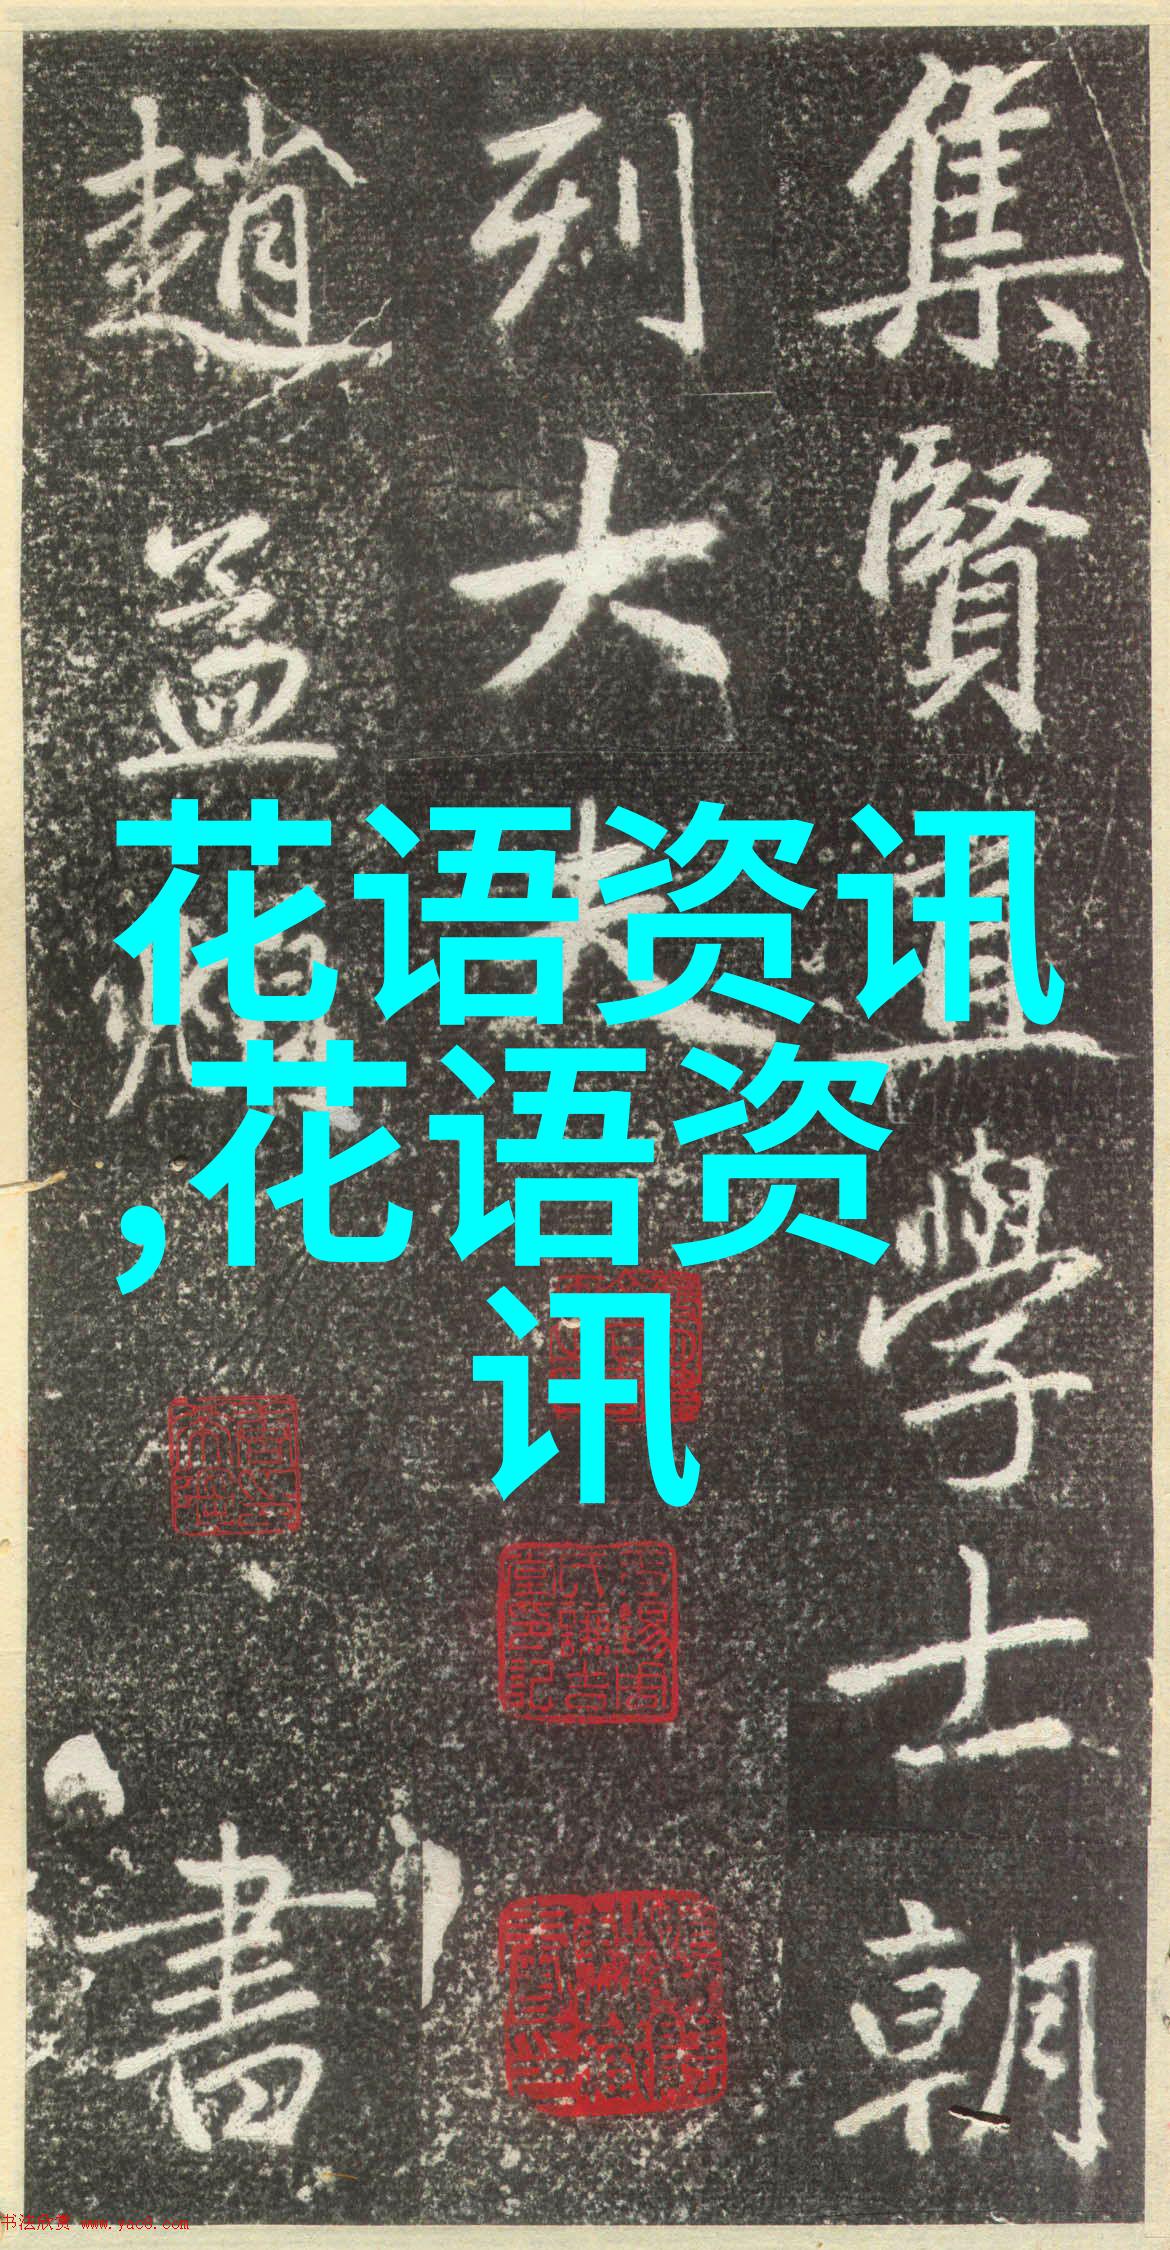 集賢直學士朝
列大夫
趙孟頫書
花语资讯
,花语资
讯
书法欣赏 www.yac8.com